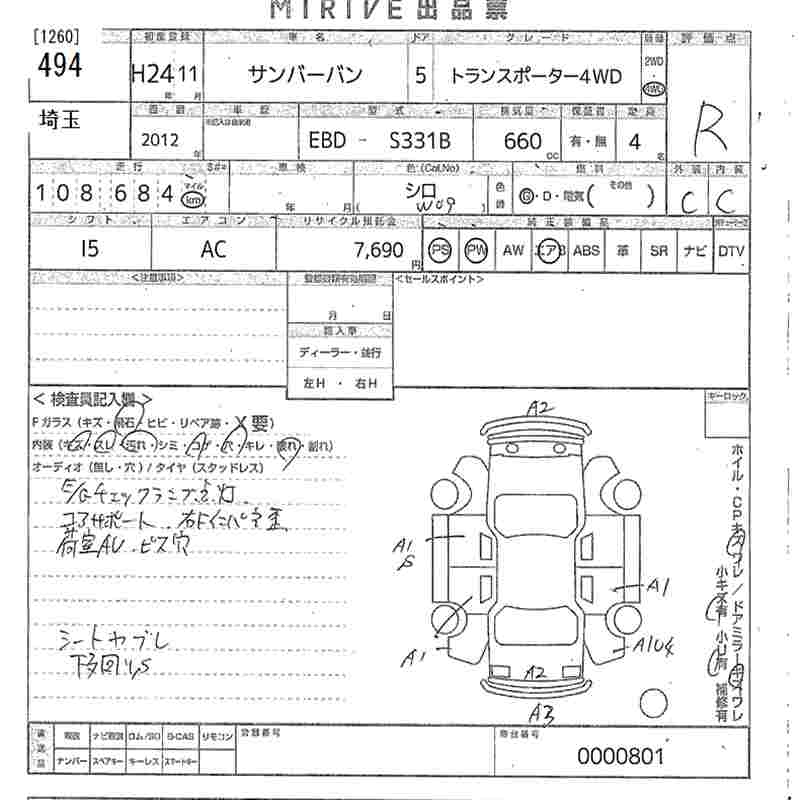 MIRIVE 出品票
[1260]
494
初度登録 車名 ドア グレード 評価点
H24 11 サンバーバン 5 トランスポーター4WD 2WD 4WD
R
埼玉
車歴 型式 排気量 定員
2012 年 EBD - S331B 660 cc 有・無 4 名
走行 車検 色(Col.No) 燃料 外装 内装
108684 マイル km 年 月 シロ W09 G・D・電気( その他 ) C C
シフト エアコン リサイクル預託金 純正装備品
I5 AC 7,690 円 PS PW AW エアB ABS 革 SR ナビ DTV
<注意事項> <セールスポイント>
月 日
輸入車
ディーラー・並行
左H ・ 右H
<検査員記入欄> キーロック
Fガラス(キズ・飛石・ヒビ・リペア跡・X要)
内装(キズ・スレ・汚れ・シミ・コゲ・穴・キレ・壊れ・割れ)
オーディオ(無し・穴)/タイヤ(スタッドレス)
E/Gチェックランプ点灯
コアサポート 右Fインパネ歪
荷室AU・ビス穴
シートヤブレ
下回りS
A2
A1
S
A1
A1
A1U4
A2
A3
ホイル・CPキズワレ/ドアミラーキズワレ
小キズ有 小U有 補修有
取説 ナビ取説 ロム/SD B-CAS リモコン
ナンバー スペアキー キーレス スマートキー
0000801